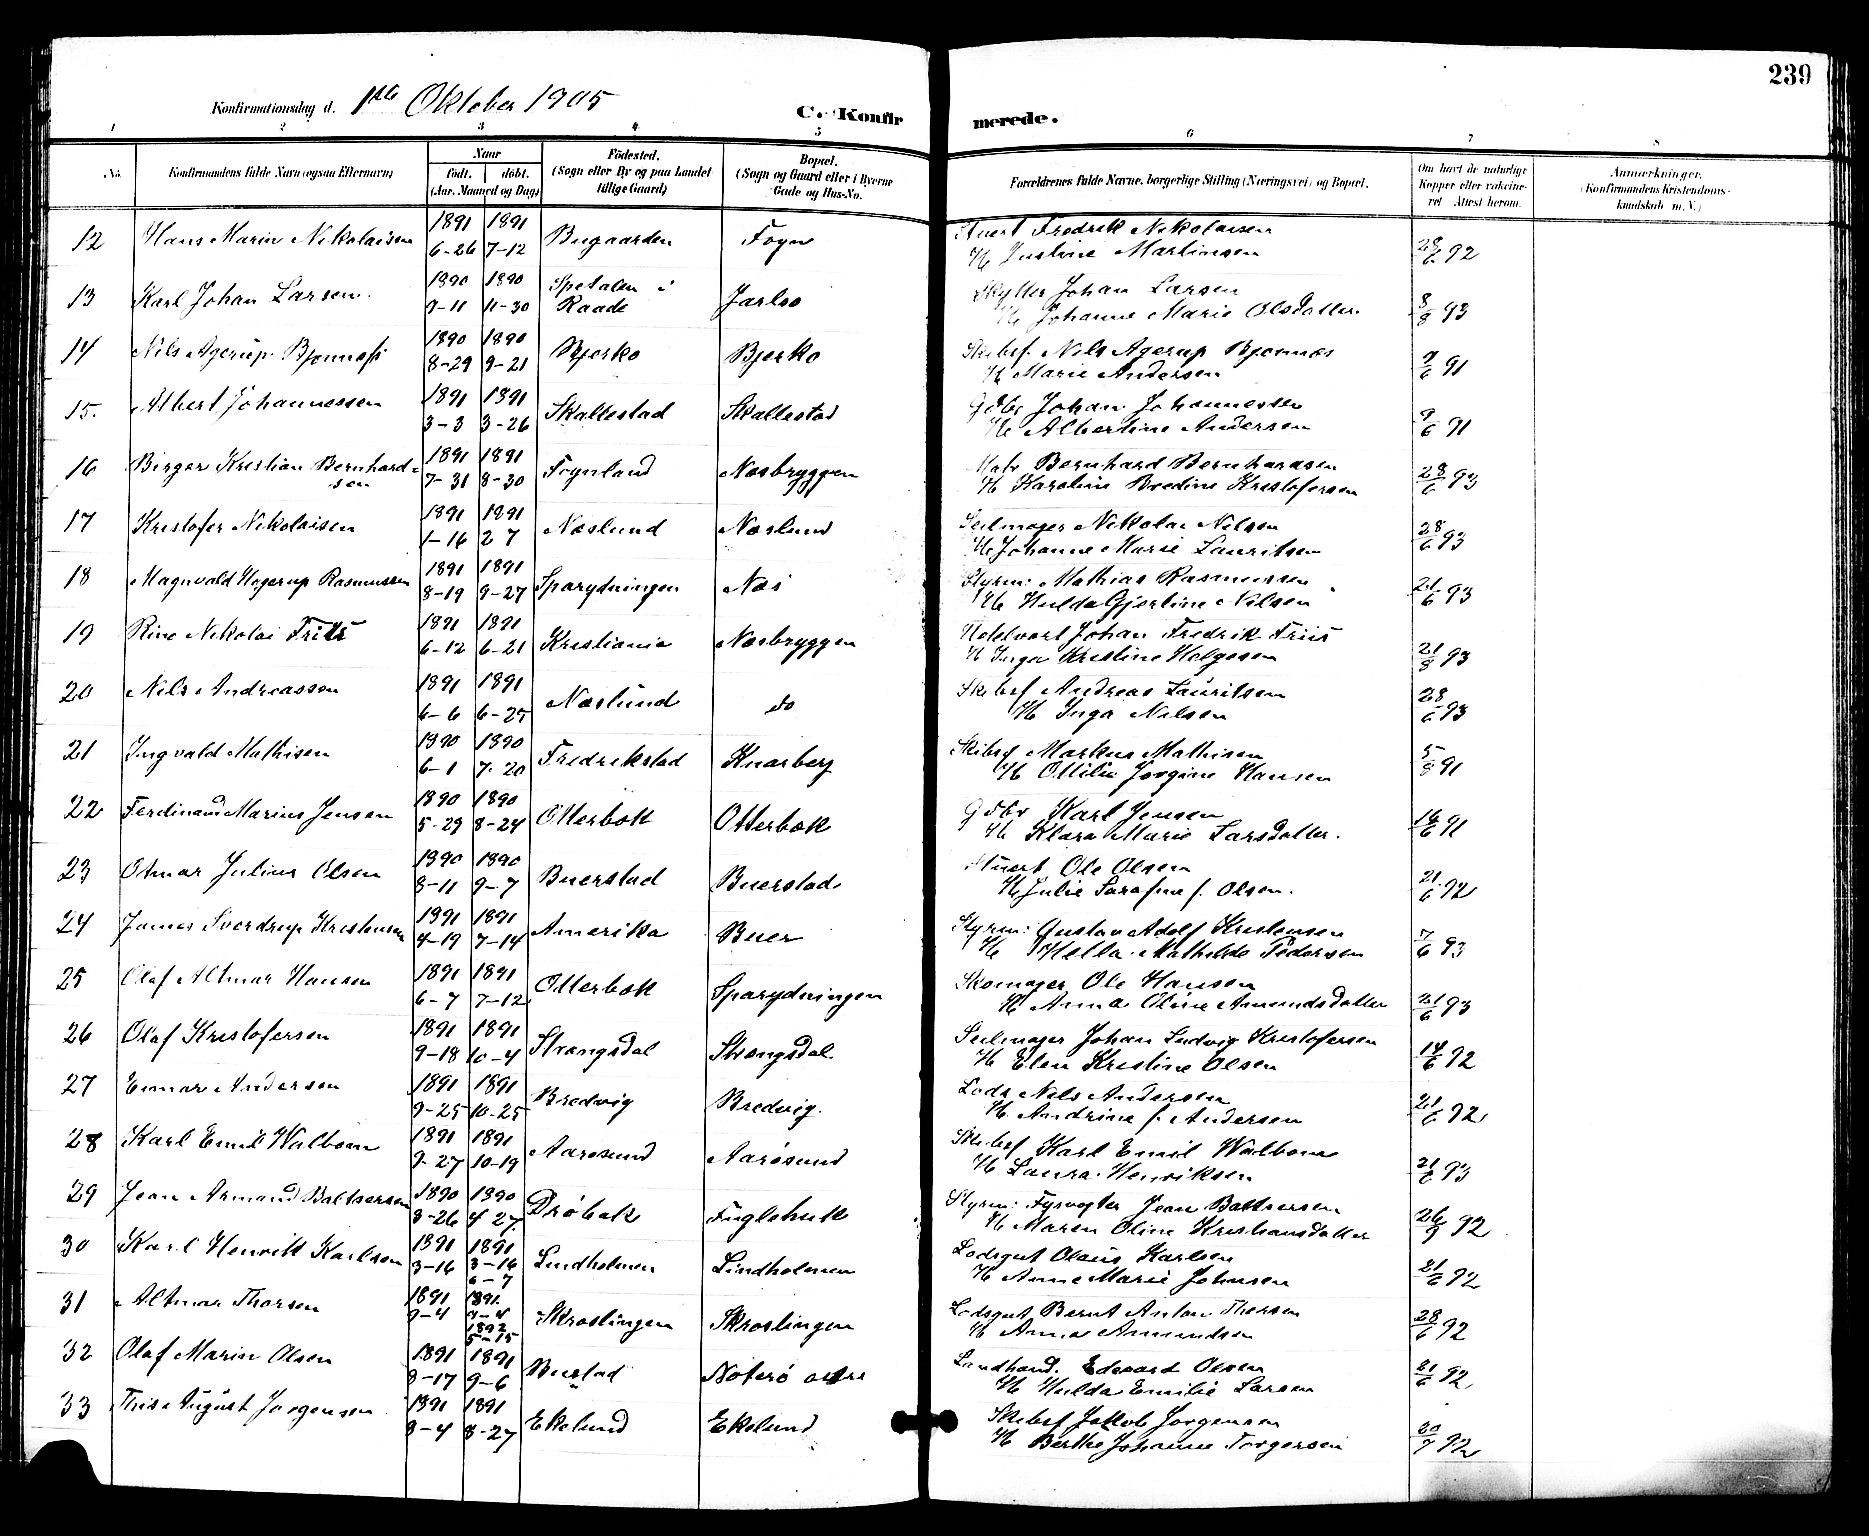 239
Konfirmationsdag d. 1ste Oktober 1905
C. Konfirmerede.
1 2 3 4 5 6 7 8
No. Konfirmandens fulde Navn (ogsaa Efternavn) Naar födt. döbt. (Aar, Maaned og Dag) Födested. (Sogn eller By og paa Landet tillige Gaard) Bopæl. (Sogn og Gaard eller i Byerne Gade og Hus-No. Forældrenes fulde Navne, borgerlige Stilling (Næringsvei) og Bopæl. Om havt de naturlige Kopper eller vakcineret Attest herom. Anmærkninger. (Konfirmandens Kristendomskundskab m. V.)
12 Hans Marin Nikolaisen 1891 6-26 1891 7-12 Bugaarden Fogn Stuert Fredrik Nikolaisen
H Justine Martinsen 28/6 92
13 Karl Johan Larsen 1890 9-11 1890 11-30 Spetalen i Raade Jarlsø Skytter Johan Larsen
H Johanne Marie Olsdatter 8/8 93
14 Nils Agerup Bjønnæs 1890 8-29 1890 9-21 Bjerkø Bjerkø Skibsf. Nils Agerup Bjønnæs
H Marie Andersen 9/6 91
15. Albert Johannessen 1891 3-3 1891 3-26 Skallestad Skallestad Gdbr Johan Johannessen
H Albertine Andersen 9/6 91
16 Birger Kristian Bernhardsen 1891 7-31 1891 8-30 Fognland Næsbryggen Matr Bernhard Bernhardsen
H Karoline Bredine Kristofersen 28/6 93
17 Kristofer Nikolaisen 1891 1-16 1891 2 7 Næslund Næslund Seilmager Nikolai Nilsen
H Johanne Marie Lauritsen 28/6 93
18 Magnvald Hagerup Rasmussen 1891 8-19 1891 9-27 Sparydningen Næs Styrm: Mathias Rasmussen
H Hulda Gjertine Nilsen 21/6 93
19 Rine Nikolai Friis 1891 6-12 1891 6-21 Kristiania Næsbryggen Hotelvært Johan Fredrik Friis
H Inga Kristine Helgesen 21/8 93
20 Nils Andreassen 1891 6-6 1891 6-25 Næslund do Skibsf Andreas Lauritsen
H Inga Nilsen 28/6 93
21 Ingvald Mathisen 1890 6-1 1890 7-20 Fredrikstad Knarberg Skibsf Markus Mathisen
H Ottilie Jorgine Hansen 5/8 91
22 Ferdinand Marius Jensen 1890 5-29 1890 8-24 Otterbek Otterbek Gdbr Karl Jensen
H Klara Marie Larsdatter. 14/6 91
23 Otmar Julius Olsen 1890 8-11 1890 9-7 Buerstad Buerstad Stuert Ole Olsen
H Julie Sarafine f. Olsen. 21/6 92
24 James Sverdrup Kristensen 1891 4-19 1891 7-14 Amerika Buer Styrm: Gustav Adolf Kristensen
H Hella Mathilde Pedersen 7/6 93
25 Olaf Altmar Hansen 1891 6-7 1891 7-12 Otterbek Sparydningen Skomager Ole Hansen
H Anna Oline Amundsdatter 21/6 93
26 Olaf Kristofersen 1891 9-18 1891 10-4 Strengsdal Strengsdal Seilmager Johan Ludvig Kristofersen
H Elen Kristine Olsen 14/6 92
27 Einar Andersen 1891 9-25 1891 10-25 Bredvig Bredvig. Lods Nils Andersen
H Andrine f. Andersen 21/6 92
28 Karl Emil Walbom 1891 9-27 1891 10-19 Aarøsund Aarøsund Skibsf Karl Emil Walbom
H Laura Henriksen 21/6 93
29 Jean Armand Baltsersen 1890 3-26 1890 4 27 Drøbak Fuglehuk Styrm: Fyrvogter Jean Baltsersen
H Maren Oline Kristiansdatter 26/9 92
30 Karl Henrik Karlsen 1891 3-16 1891 3-16 6-7 Lindholmen Lindholmen Lodsgut Olaus Karlsen
H Anne Marie Johnsen 21/6 92
31 Altmar Thorsen 1891 9-4 1891 9-4 1892 5-15 Skroslingen Skroslingen Lodsgut Bernt Anton Thorsen
H Anna Amundsen 28/6 92
32 Olaf Marin Olsen 1891 8-17 1891 9-6 Bustad Nøterø østre Landhand. Edevard Olsen
H Hulda Emilie Larsen 21/6 92
33 Thrise August Jørgensen 1891 8-4 1891 8-27 Ekelund Ekelund Skibsf Jakob Jørgensen
H Berthe Johanne Torgersen 20/7 92